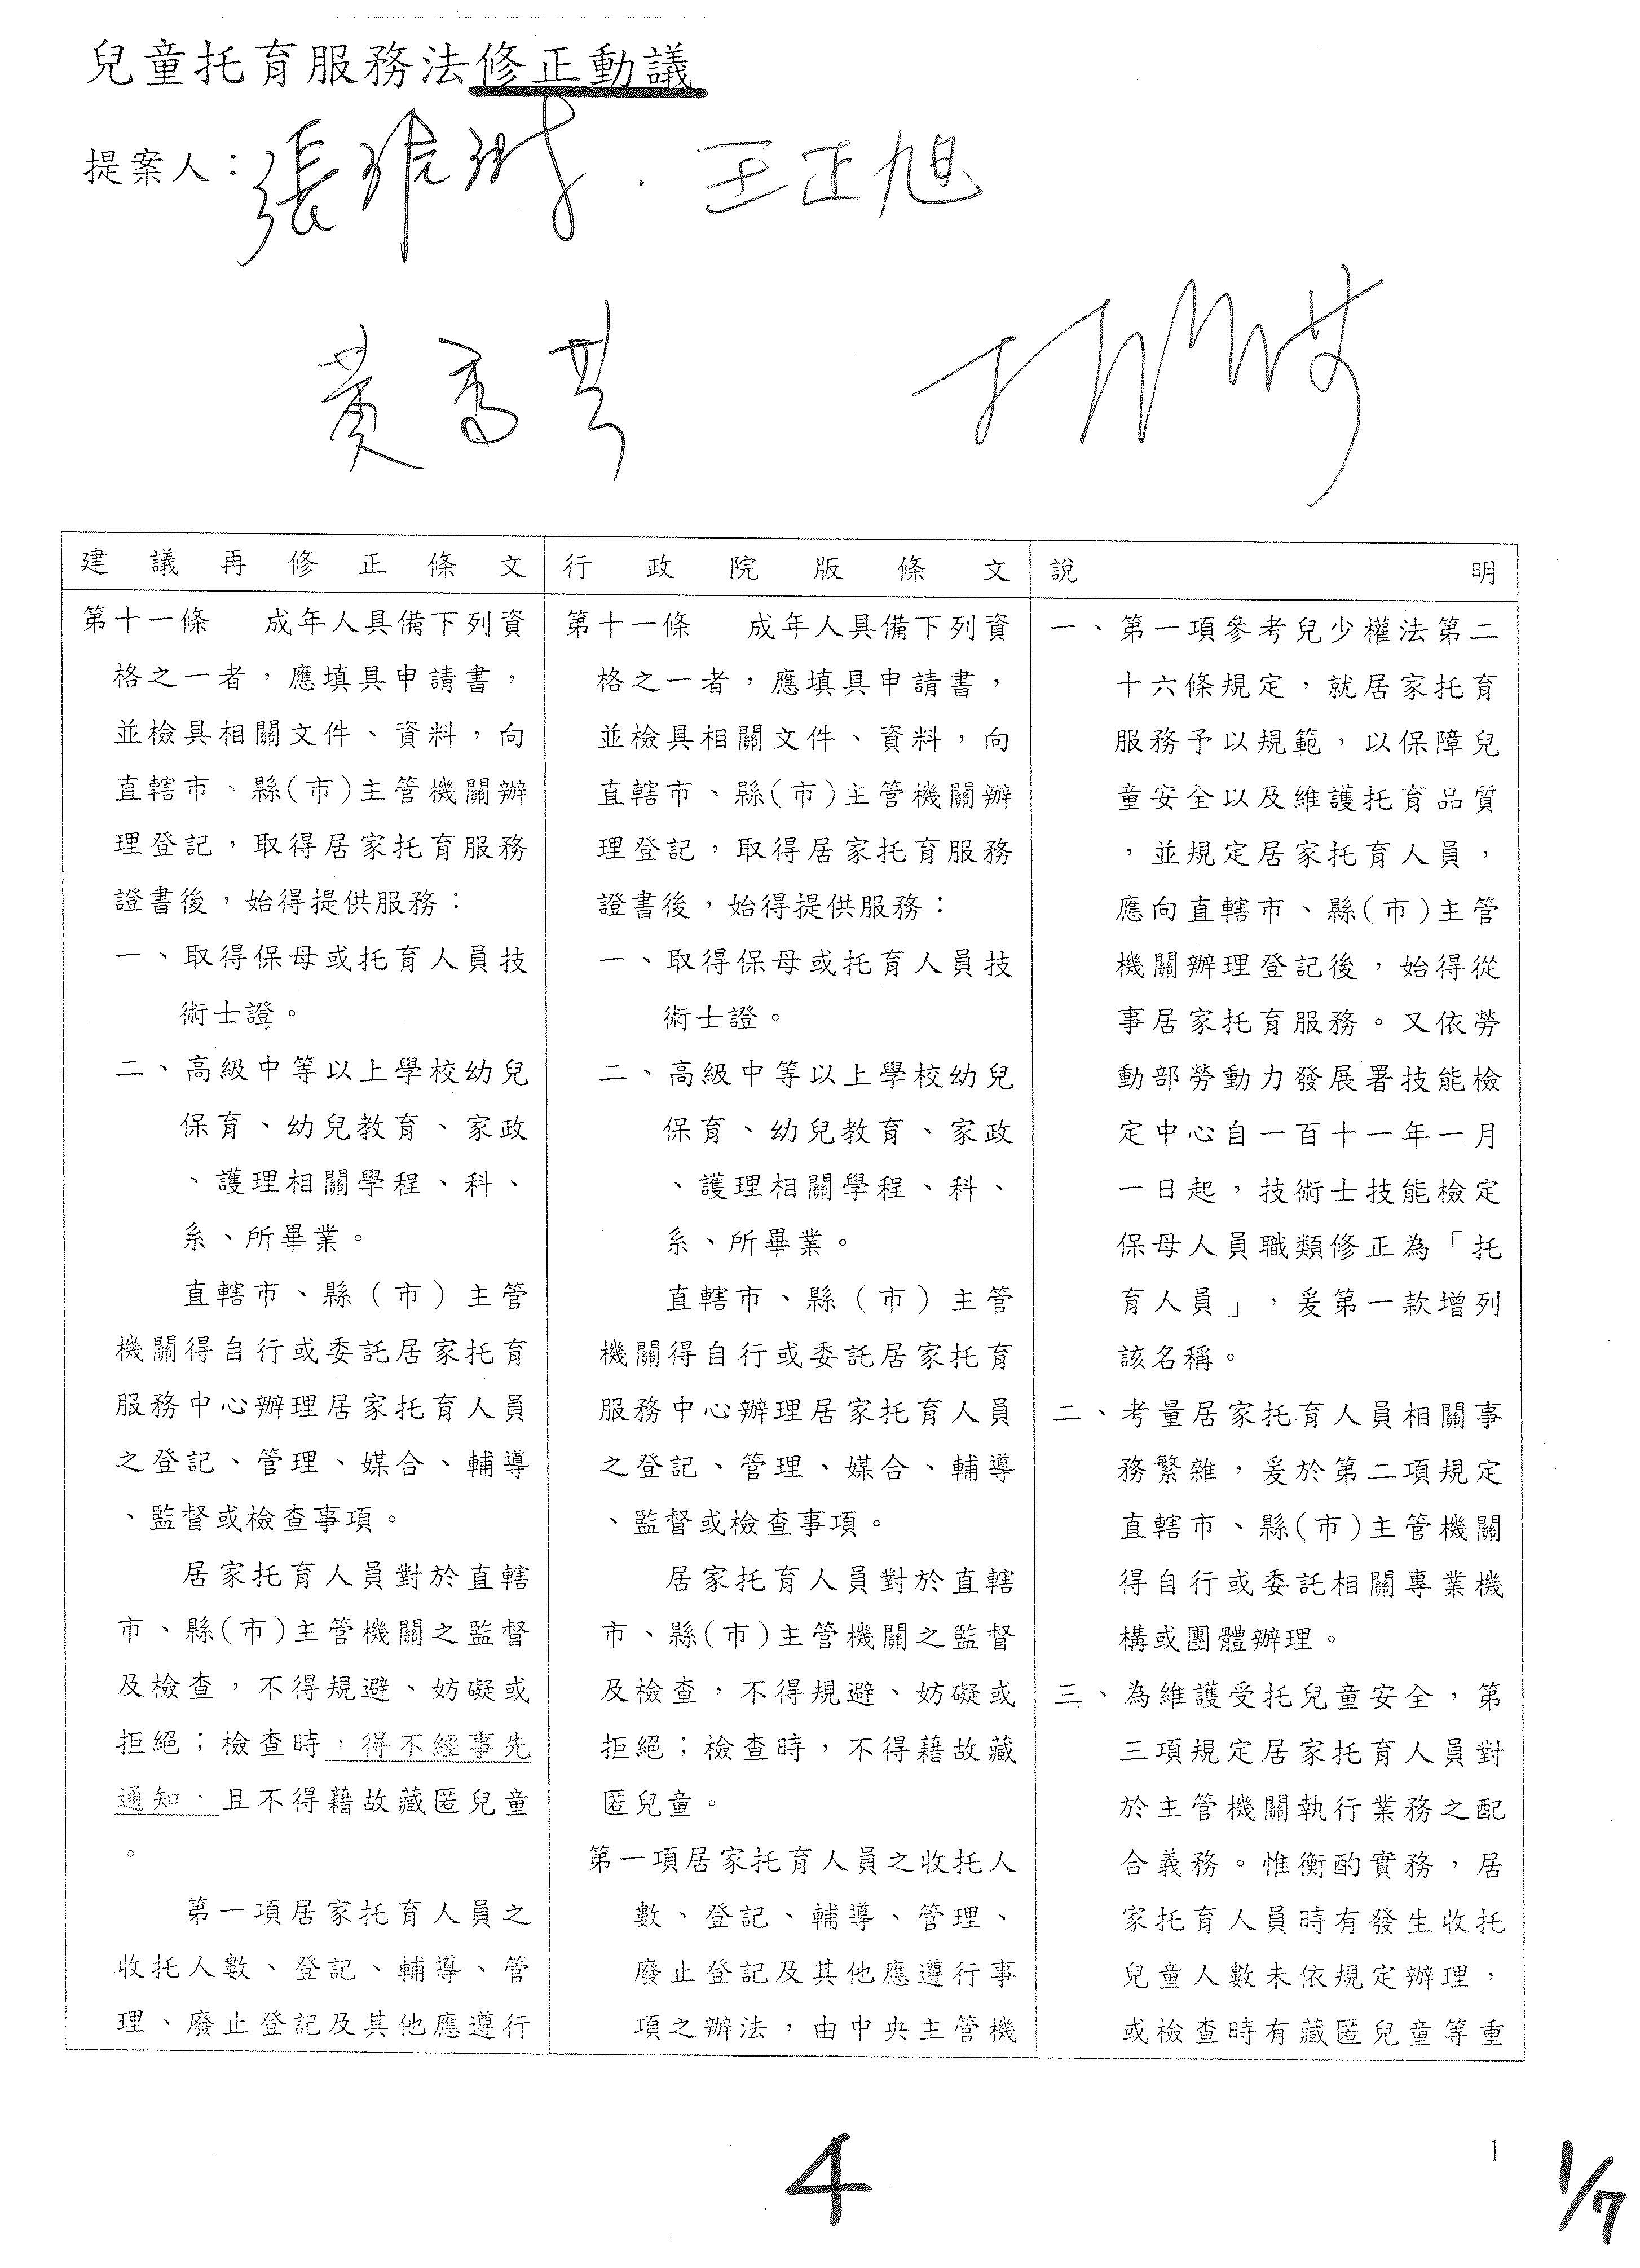 兒童托育服務法修正動議
提案人：張雅琳．王正旭
黃秀芳
建議再修正條文
第十一條　成年人具備下列資
格之一者，應填具申請書，
並檢具相關文件、資料，向
直轄市、縣(市)主管機關辦
理登記，取得居家托育服務
證書後，始得提供服務：
一、取得保母或托育人員技
術士證。
二、高級中等以上學校幼兒
保育、幼兒教育、家政
、護理相關學程、科、
系、所畢業。
直轄市、縣（市）主管
機關得自行或委託居家托育
服務中心辦理居家托育人員
之登記、管理、媒合、輔導
、監督或檢查事項。
居家托育人員對於直轄
市、縣(市)主管機關之監督
及檢查，不得規避、妨礙或
拒絕；檢查時，得不經事先
通知、且不得藉故藏匿兒童
。
第一項居家托育人員之
收托人數、登記、輔導、管
理、廢止登記及其他應遵行
行政院版條文
第十一條　成年人具備下列資
格之一者，應填具申請書，
並檢具相關文件、資料，向
直轄市、縣(市)主管機關辦
理登記，取得居家托育服務
證書後，始得提供服務：
一、取得保母或托育人員技
術士證。
二、高級中等以上學校幼兒
保育、幼兒教育、家政
、護理相關學程、科、
系、所畢業。
直轄市、縣（市）主管
機關得自行或委託居家托育
服務中心辦理居家托育人員
之登記、管理、媒合、輔導
、監督或檢查事項。
居家托育人員對於直轄
市、縣(市)主管機關之監督
及檢查，不得規避、妨礙或
拒絕；檢查時，不得藉故藏
匿兒童。
第一項居家托育人員之收托人
數、登記、輔導、管理、
廢止登記及其他應遵行事
項之辦法，由中央主管機
說明
一、第一項參考兒少權法第二
十六條規定，就居家托育
服務予以規範，以保障兒
童安全以及維護托育品質
，並規定居家托育人員，
應向直轄市、縣(市)主管
機關辦理登記後，始得從
事居家托育服務。又依勞
動部勞動力發展署技能檢
定中心自一百十一年一月
一日起，技術士技能檢定
保母人員職類修正為「托
育人員」，爰第一款增列
該名稱。
二、考量居家托育人員相關事
務繁雜，爰於第二項規定
直轄市、縣(市)主管機關
得自行或委託相關專業機
構或團體辦理。
三、為維護受托兒童安全，第
三項規定居家托育人員對
於主管機關執行業務之配
合義務。惟衡酌實務，居
家托育人員時有發生收托
兒童人數未依規定辦理，
或檢查時有藏匿兒童等重
1
4
1/7